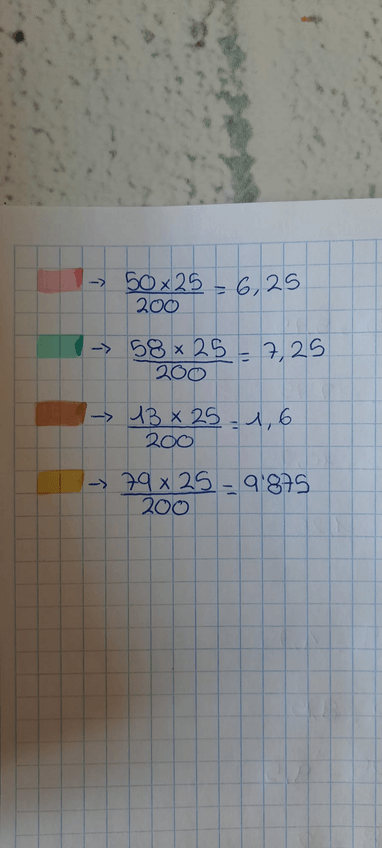 → 50 x 25 / 200 = 6,25
→ 58 x 25 / 200 = 7,25
→ 13 x 25 / 200 = 1,6
→ 79 x 25 / 200 = 9'875